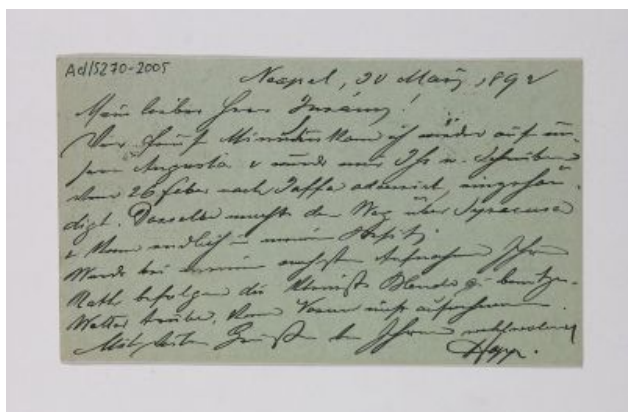 Ad/5270-2005
Neapel, 30 März 1892
Mein lieber Herr
Vor fünf Minuten kam ich wieder auf un-
sere Augusta & wurde mir Ihr w. Schreiben
vom 26 Feber nach Jaffa adressirt, eingehän-
digt. Dasselbe machte den Weg über Syracusa
& kam endlich in meinen Besitz.
Werde bei meinen nächsten Aufnahmen Ihren
Rath befolgen die kleinste Blende zu benützen.
Wetter trübe, kann Vesuv nicht aufnehmen.
Mit besten Grüßen bin Ihr
Hopp.